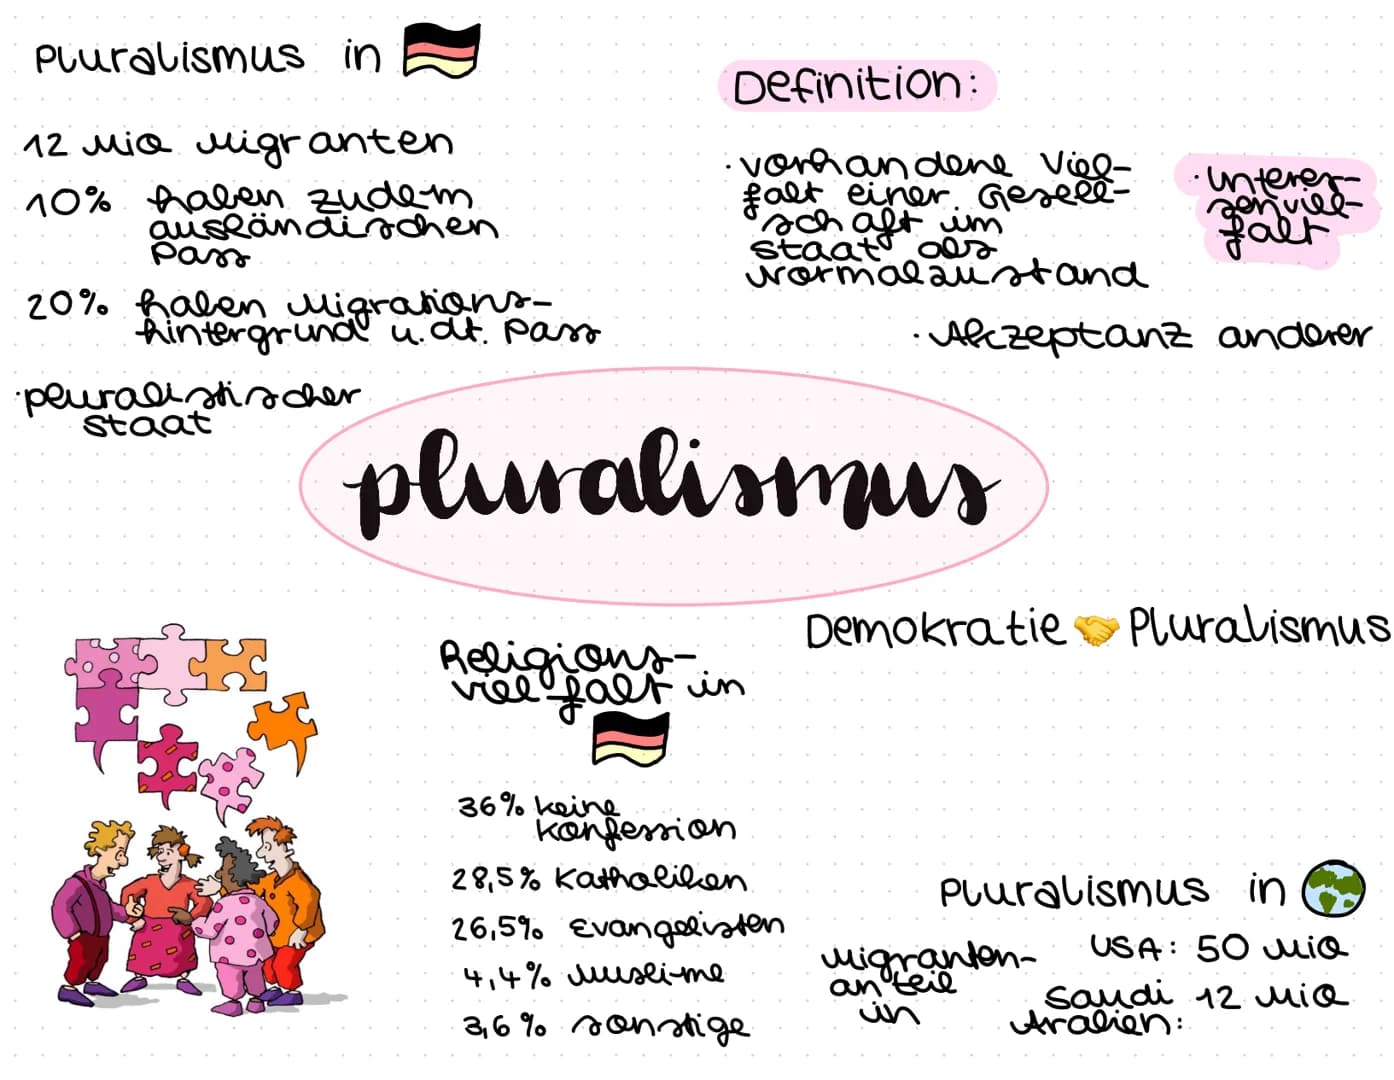 Pluralismus in
12 Mio Migranten
10% haben zudem
ausländischen
Pass
20% haben Migrations-
hintergrund u. dt. Pass
· pluralistischer
staat
Definition:
· vorhandene Viel-
falt einer Gesell-
schaft im
Staat als
Normalzustand
· Interes-
senviel-
falt
· Akzeptanz anderer
pluralismus
Demokratie 🤝 Pluralismus
Religions-
vielfalt in
36% keine
Konfession
28,5% Katholiken
26,5% Evangelisten
4,4% Muslime
3,6% sonstige
Pluralismus in
Migranten-
anteil
in
USA: 50 Mio
Saudi 12 Mio
Arabien: